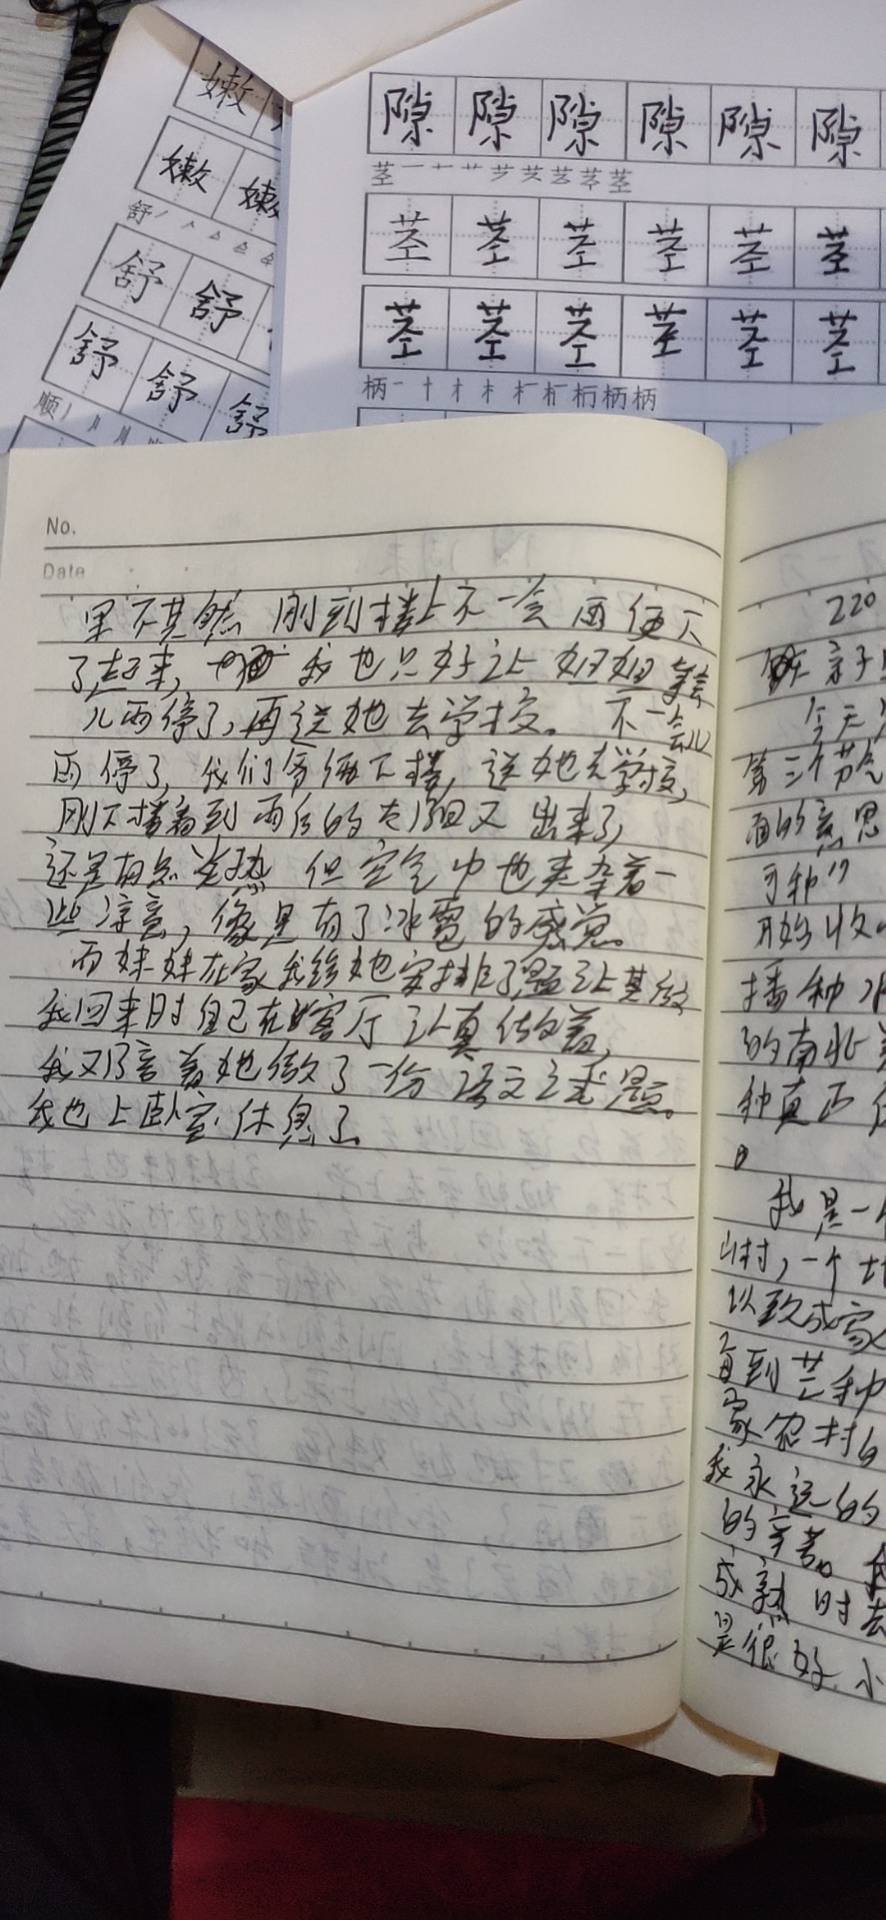 嫩
嫩 嫩
舒
舒 舒
舒 舒 舒
顺
隙 隙 隙 隙 隙 隙
茎
茎 茎 茎 茎 茎 茎
茎 茎 茎 茎 茎 茎
柄
No.
Date
果不其然 刚到楼上不一会 雨便下
了起来, 我也只好让姐姐等会
儿雨停了,再送她去学校。 不一会儿
雨停了, 我们便下楼, 送她去学校,
刚下楼看到雨后的太阳又出来了,
还是有点炎热 但空气中也夹杂着一
些凉意, 像是有了冰雹的感觉。
而妹妹在家我给她安排了题让其做
我回来时自己在客厅认真做着,
我又陪着她做了一份语文试题。
我也上卧室休息了。
220
亲子
今天
第三个节气
面的意思
可种”
开始收
播种
的南北
种真正
。
我是一个
山村, 一个
以致成家
每到芒种
家农村
我永远的
的辛苦。
成熟时去
是很好 小